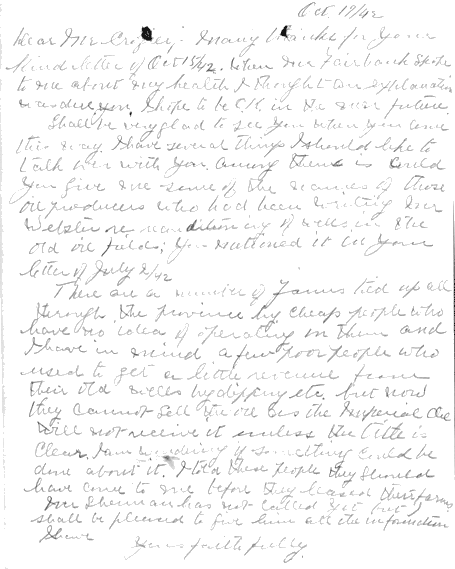 Oct. 19/42
Dear Mr Crozier; Many thanks for your
kind letter of Oct 15/42. When Mr Fairbank spoke
to me about my health I thought an explanation
was due you. I hope to be O.K. in the near future.
Shall be very glad to see you when you come
this way. I have several things I should like to
talk over with you. Among them is could
you give me some of the names of those
oil producers who had been writing Mr
Webster re conditioning of wells in the
old oil fields; you mentioned it in your
letter of July 2/42
There are a number of farms tied up all
through the province by cheap people who
have no idea of operating on them and
I have in mind a few poor people who
used to get a little revenue from
their old wells by dipping etc. but now
they cannot sell the oil as the Imperial Oil
will not receive it unless the title is
clear. I am wondering if something could be
done about it. I told these people they should
have come to me before they leased their farms
Mr Sherman has not called yet but
shall be pleased to give him all the information
I have
Yours faithfully